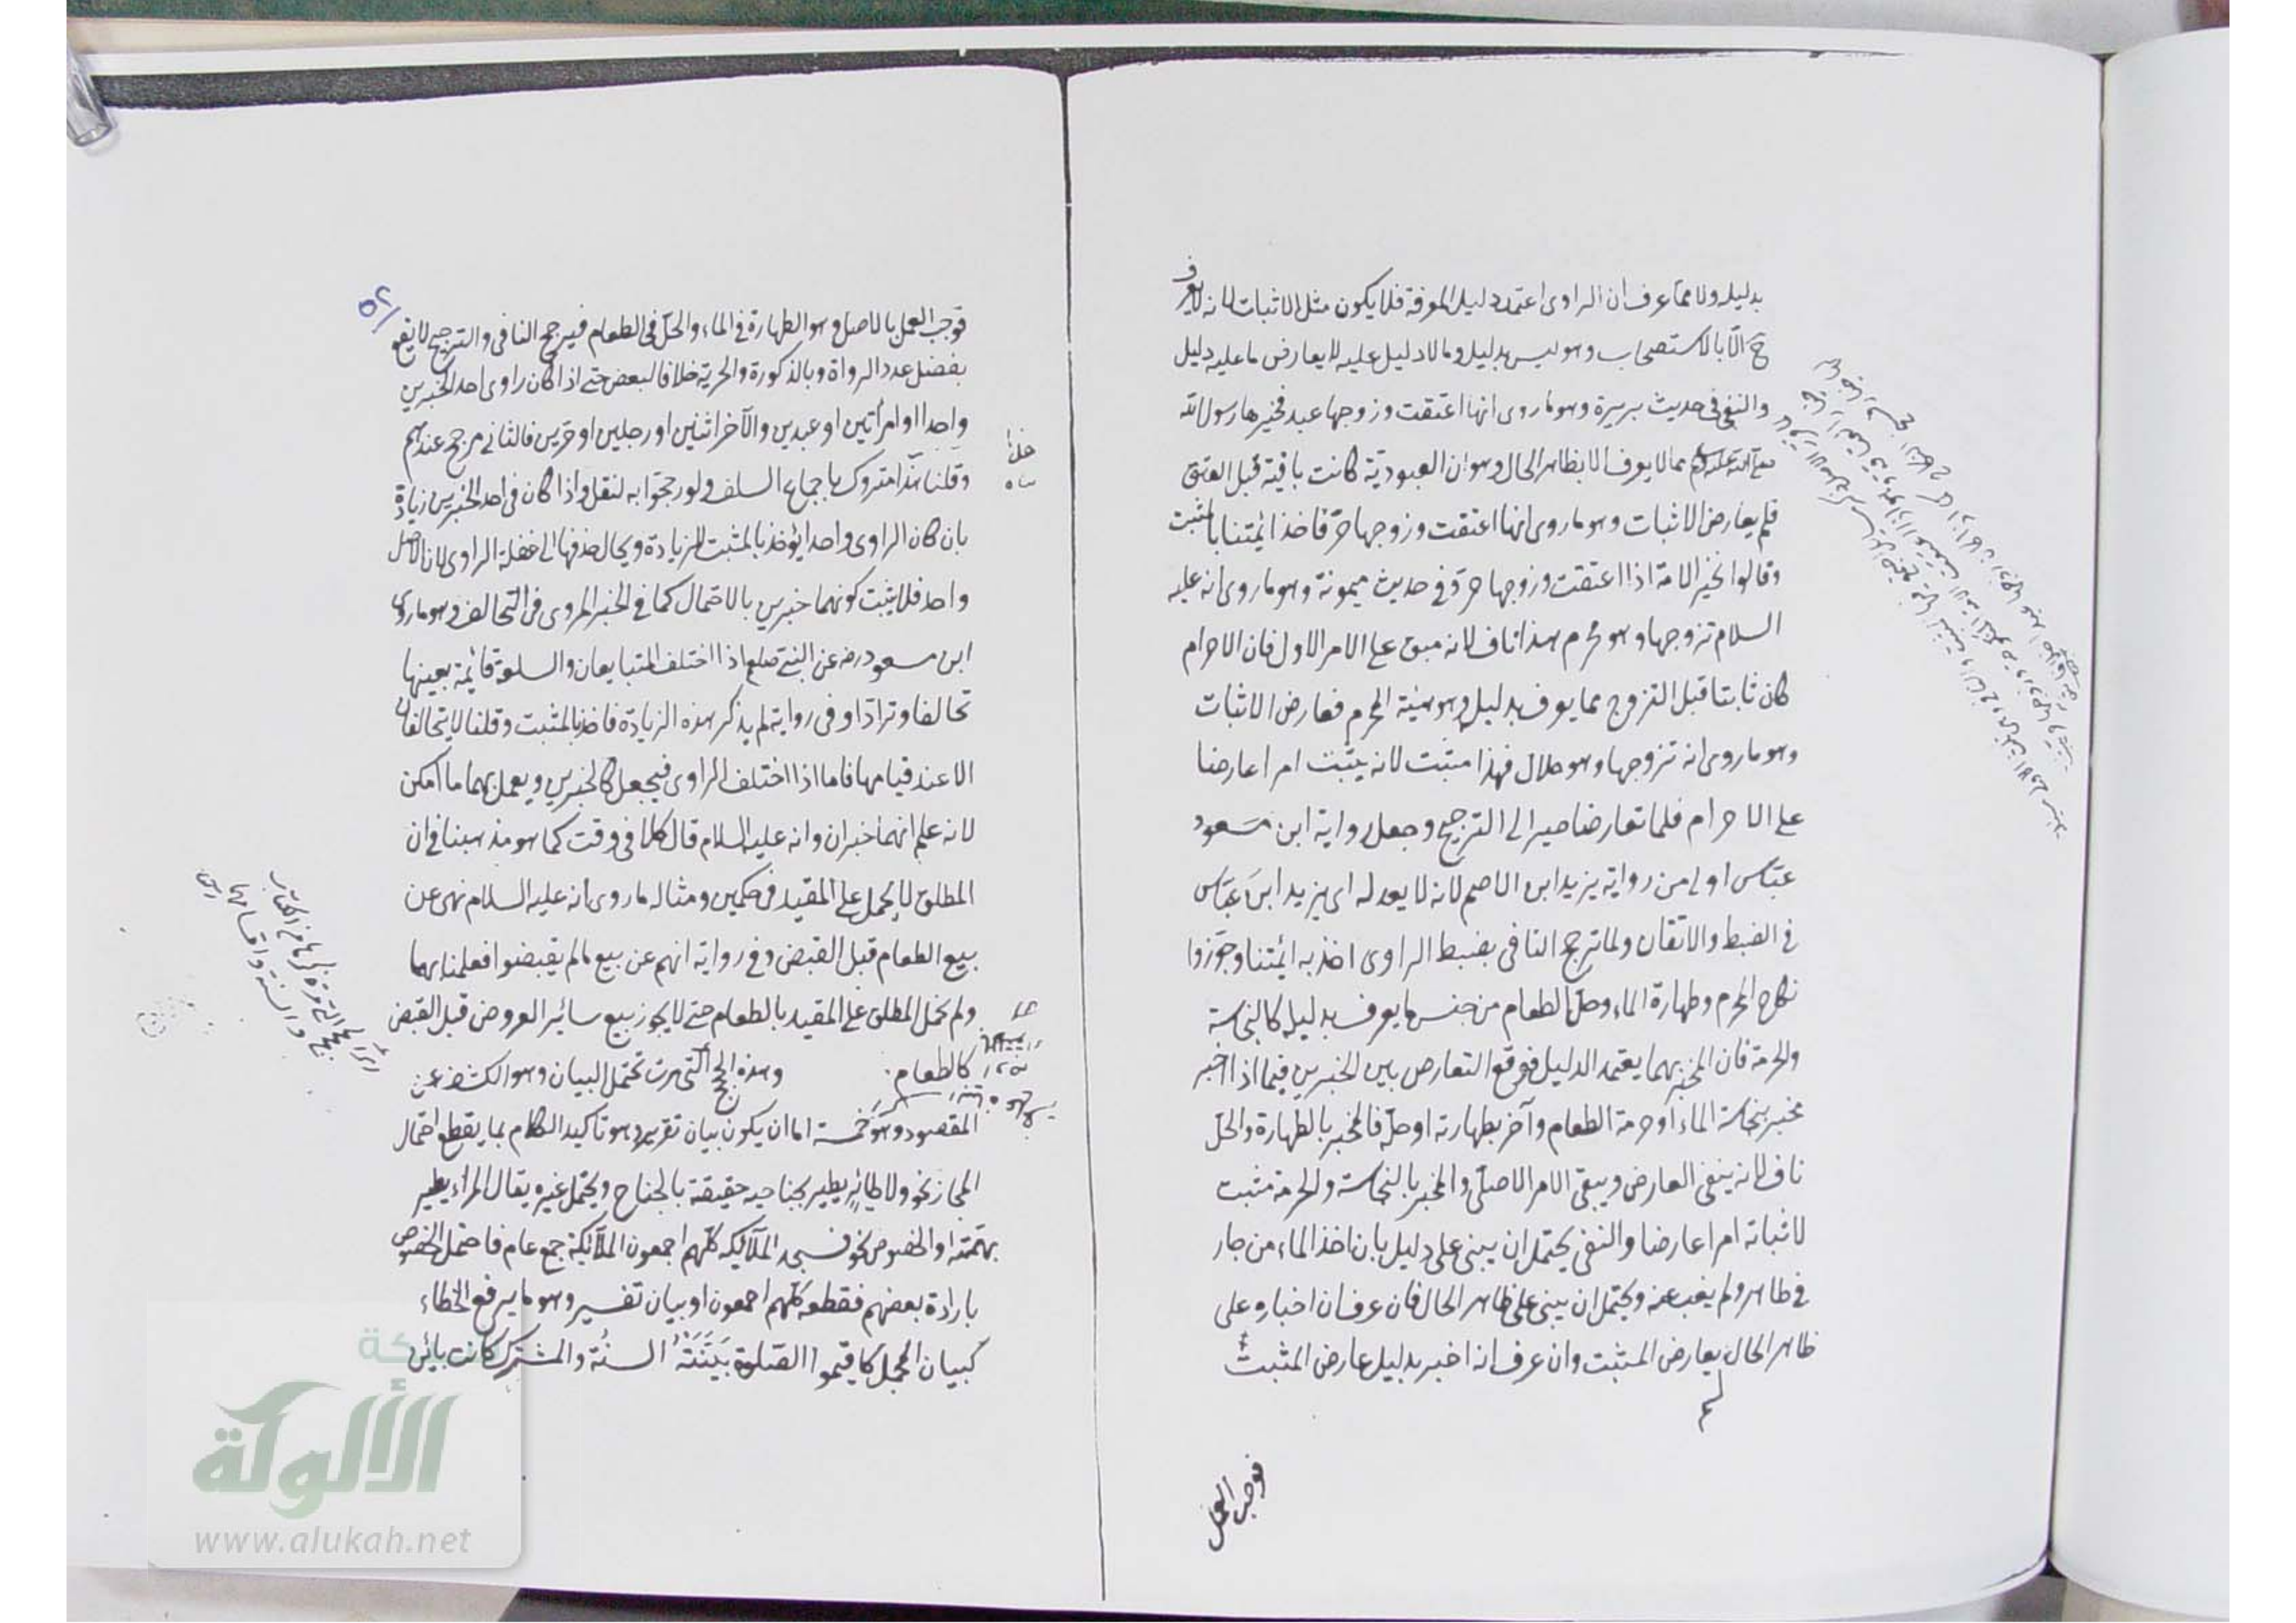 بدليله ولا مما عرف ان الراوى اعتمد دليل المعرفة فلا يكون مثل الاثبات لانه لا يعرف
ح الّا بالاستصحاب وهو ليس بدليل وما لا دليل عليه لا يعارض ما عليه دليل
والنفى فى حديث بريرة وهو ما روى انها اعتقت وزوجها عبد فخيرها رسول الله
صلى الله عليه وسلم مما لا يعرف الا بظاهر الحال وهو ان العبودية كانت باقية قبل العتق
فلم يعارض الاثبات وهو ما روى انها اعتقت وزوجها حرّ فاخذ ائمتنا بالمثبت
وقالوا تخير الامة اذا اعتقت وزوجها حر وفى حديث ميمونة وهو ما روى انه عليه
السلام تزوجها وهو محرم هذا ناف لانه مبق على الامر الاول فان الاحرام
كان ثابتا قبل التزوج مما يعرف بدليل وهو هيئة المحرم فعارض الاثبات
وهو ما روى انه تزوجها وهو حلال فهذا مثبت لانه يثبت امرا عارضا
على الاحرام فلما تعارضا صير الى الترجيح وجعل رواية ابن مسعود
عبّاس اولى من رواية يزيد ابن الاصم لانه لا يعدله اى يزيد ابن عبّاس
فى الضبط والاتقان ولما ترجح النافى بضبط الراوى اخذ به ائمتنا وجوّزوا
نكاح المحرم وطهارة الماء وحل الطعام من جنس ما يعرف بدليله كالنجاسة
والحرمة فان المخبر بهما يعتمد الدليل فوقع التعارض بين الخبرين فيما اذا اخبر
مخبر بنجاسة الماء او حرمة الطعام وآخر بطهارته او حلّه فالمخبر بالطهارة والحل
ناف لانه ينفى العارض ويبقى الامر الاصلى والمخبر بالنجاسة والحرمة مثبت
لاثباته امرا عارضا والنفى يحتمل ان يبنى على دليل بان اخذ الماء من جار
فى طاهر ولم يغب عنه ويحتمل ان يبنى على ظاهر الحال فان عرف ان اخباره على
ظاهر الحال يعارض المثبت وان عرف انه اخبر بدليل عارض المثبت
لم
فوجب العمل
٥٢
فوجب العمل بالاصل وهو الطهارة فى الماء والحلّ فى الطعام فيرجح النافى والترجيح لا يقع
بفضل عدد الرواة وبالذكورة والحرية خلافا لبعض حتى اذا كان راوى احد الخبرين
واحدا او امرأتين او عبدين والآخر اثنين او رجلين او حرّين فالثانى مرجح عندهم
وقلنا هذا متروك باجماع السلف ولو رجحوا به لنقل واذا كان فى احد الخبرين زيادة
بان كان الراوى واحدا يؤخذ بالمثبت للزيادة ويحال حذفها الى غفلة الراوى لان الاصل
واحد فلا يثبت كونهما خبرين بالاحتمال كما فى الخبر المروى فى التحالف وهو ما روى
ابن مسعود رضه عن النبى صلعم اذا اختلف المتبايعان والسلعة قائمة بعينها
تحالفا وترادّا وفى رواية لم يذكر هذه الزيادة فاخذ بالمثبت وقلنا لا يتحالفان
الا عند قيامها فاما اذا اختلف الراوى فيجعل كالخبرين ويعمل بهما ما امكن
لانه علم انهما خبران وانه عليه السلام قال كلا فى وقت كما هو مذهبنا فى ان
المطلق لا يحمل على المقيد فى حكمين ومثاله ما روى انه عليه السلام نهى عن
بيع الطعام قبل القبض وفى رواية انهم عن بيع ما لم يقبضوا فعلمنا بهما
ولم نحمل المطلق على المقيد بالطعام حتى لا يجوز بيع سائر العروض قبل القبض
كالطعام. وهذه الحجج التى مرت تحتمل البيان وهو الكشف عن
المقصود وهو خمسة اما ان يكون بيان تقرير وهو تاكيد الكلام بما يقطع احتمال
المجاز نحو ولا طائر يطير بجناحيه حقيقة بالجناح ويحتمل غيره يقال المرأ يطير
بهمّته او الخصوص نحو فسجد الملآئكة كلّهم اجمعون الملآئكة جمع عام فاحتمل الخصوص
بارادة بعضهم فقطعه كلّهم اجمعون او بيان تفسير وهو ما يرفع الخفاء
كبيان المجمل كاقيموا الصّلوة بَيَّنَتْهُ السنّة والمشترك كانت بائن
الألوكة
www.alukah.net